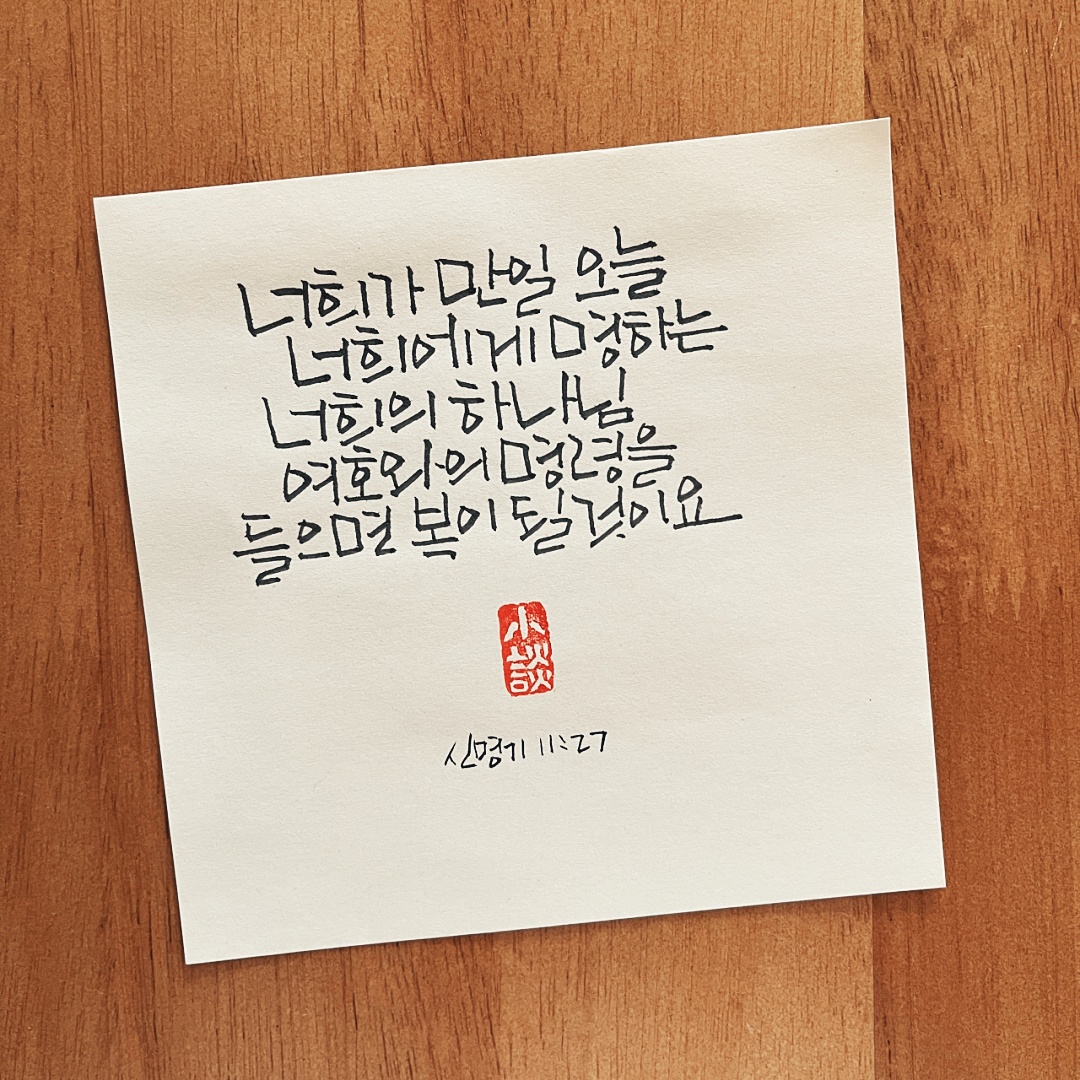 너희가 만일 오늘
너희에게 명하는
너희의 하나님
여호와의 명령을
들으면 복이 될 것이요
小
談
신명기 11:27